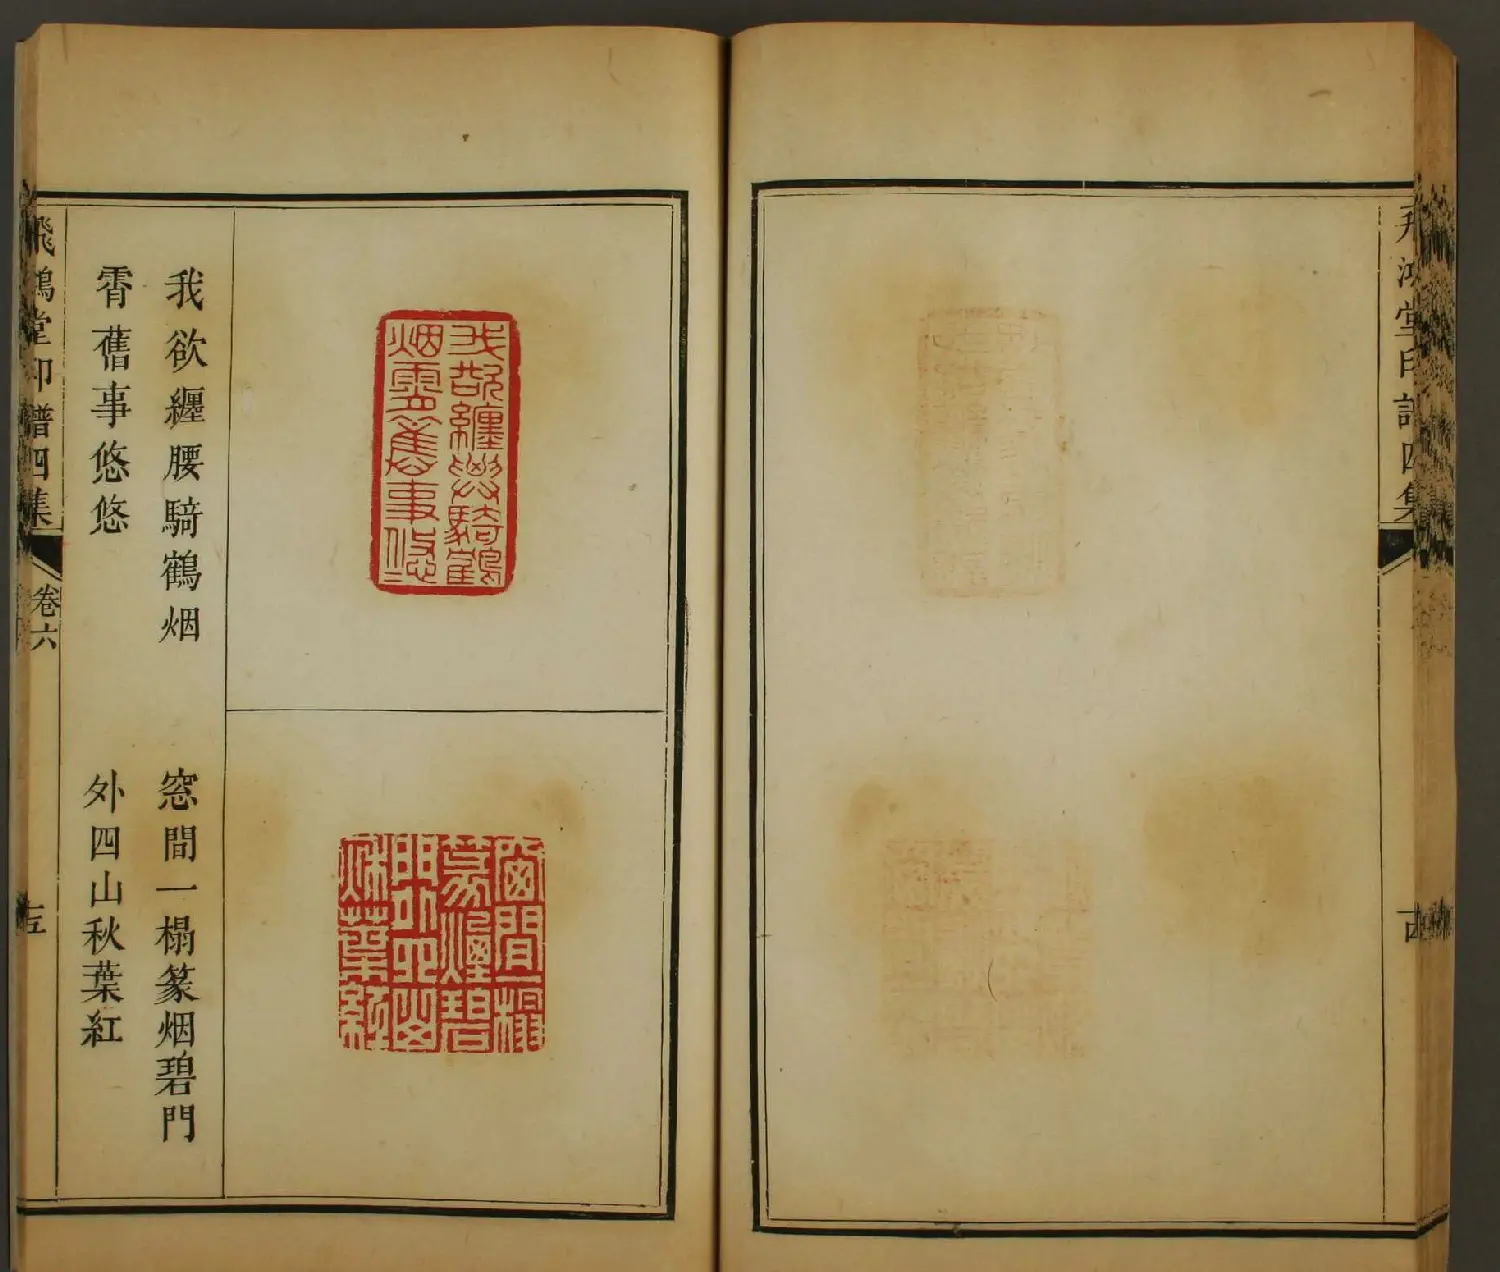 飛鴻堂印譜四集
十四
我欲纏腰騎鶴烟
霄舊事悠悠
窓間一榻篆烟碧門
外四山秋葉紅
飛鴻堂印譜四集
卷六
十五